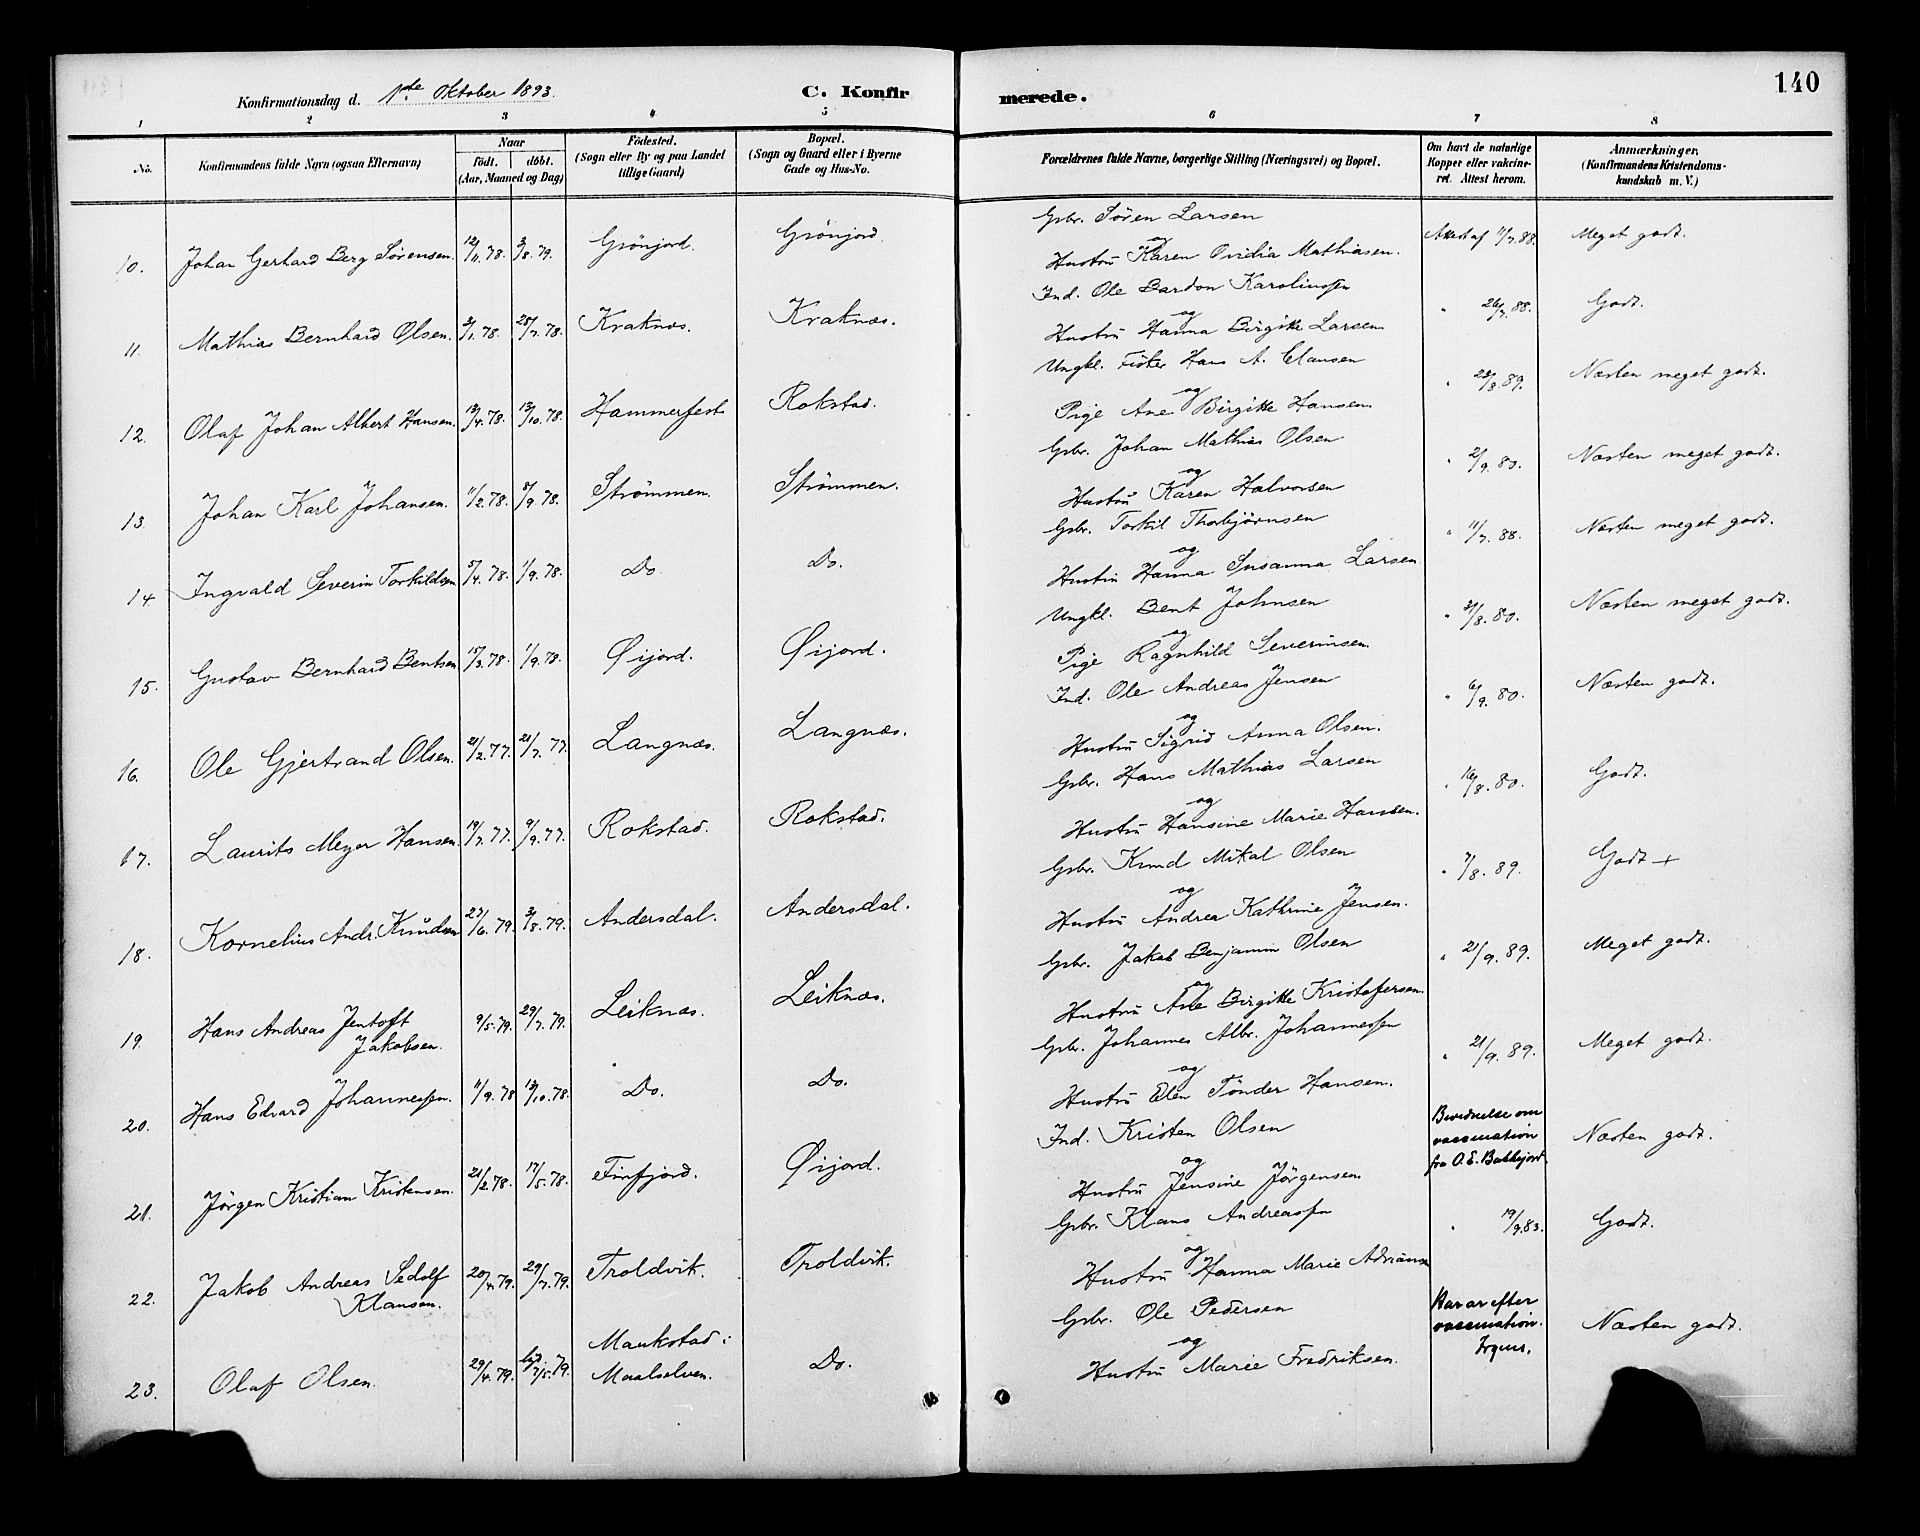 140
Konfirmationsdag d. 1ste Oktober 1893. C. Konfirmerede.
1 2 3 4 5 6 7 8
No. Konfirmandens fulde Navn (ogsaa Efternavn) Naar født. døbt. (Aar, Maaned og Dag) Fødested. (Sogn eller By og paa Landet tillige Gaard) Bopæl. (Sogn og Gaard eller i Byerne Gade og Hus-No. Forældrenes fulde Navne, borgerlige Stilling (Næringsvei) og Bopæl. Om havt de naturlige Kopper eller vakcineret. Attest herom. Anmærkninger. (Konfirmandens Kristendomskundskab m. V.)
10. Johan Gerhard Berg Sørensen. 12/11.78. 3/8.79. Grönjord. Grönjord. Gbr. Søren Larsen Attest af 11/7.88. Meget godt.
og
Hustru Karen Ovidia Mathiasen.
11. Mathias Bernhard Olsen. 3/1.78. 28/7.78. Kraknæs. Kraknæs. Ind. Ole Bardon Karolinssen " 26/7.88. Godt.
og
Hustru Hanna Birgitte Larsen
12. Olaf Johan Albert Hansen. 13/4.78. 13/10.78. Hammerfest Rokstad. Ungkl. Fisker Hans A. Clausen " 23/8.89. Næsten meget godt.
og
Pige Ane Birgitte Hansen.
13. Johan Karl Johansen. 11/2.78. 8/9.78. Strömmen. Strömmen. Gbr. Johan Mathias Olsen " 2/9.80. Næsten meget godt.
og
Hustru Karen Halvorsen
14. Ingvald Severin Torkildsen 5/4.78. 1/9.78. Do. Do. Gbr. Torkil Thorbjørnsen " 11/7.88. Næsten meget godt.
og
Hustru Hanna Susanna Larsen
15. Gustav Bernhard Bentsen 15/3.78. 1/9.78. Øijord. Øijord. Ungkl. Bent Johnsen " 31/8.80. Næsten meget godt.
og
Pige Ragnhild Severinsen
16. Ole Gjertrand Olsen. 21/2.77. 21/7.77. Langnæs. Langnæs. Ind. Ole Andreas Jensen " 6/9.80. Næsten godt.
og
Hustru Sigrid Anna Olsen.
17. Laurits Meyer Hansen 19/7.77. 9/9.77. Rokstad. Rokstad. Gbr. Hans Mathias Larsen " 16/8.80. Godt.
og
Hustru Hansine Marie Hansen.
18. Kornelius Andr. Knudsen 27/6.79. 3/8.79. Andersdal. Andersdal. Gbr. Knud Mikal Olsen " 7/8.89. Godt +
og
Hustru Andrea Kathrine Jensen.
19. Hans Andreas Jentoft Jakobsen. 9/5.79. 29/7.79. Leiknæs. Leiknæs. Gbr. Jakob Benjamin Olsen " 21/9.89. Meget godt.
og
Hustru Ane Birgitte Kristofersen.
20. Hans Edvard Johannessen. 11/9.78 13/10.78. Do. Do. Gbr. Johannes Albr. Johannessen " 21/9.89. Meget godt.
og
Hustru Elen Tönder Hansen.
21. Jörgen Kristian Kristensen. 21/2.78. 17/5.78. Finfjord. Øijord. Ind. Kristen Olsen Bevidnelse om vaccination fra O.E. Bakkejord. Næsten godt.
og
Hustru Jensine Jörgensen
22. Jakob Andreas Sedolf Klausen. 20/4.79. 29/7.79. Troldvik. Troldvik. Gbr. Klaus Andreassen " 19/9.83. Godt.
og
Hustru Hanna Marie Adriansen
23. Olaf Olsen. 29/4.79. /5.79. Maukstad i Maalselven. Do. Gbr. Ole Pedersen Har ar efter vaccination. Næsten godt.
og
Hustru Marie Fredriksen.